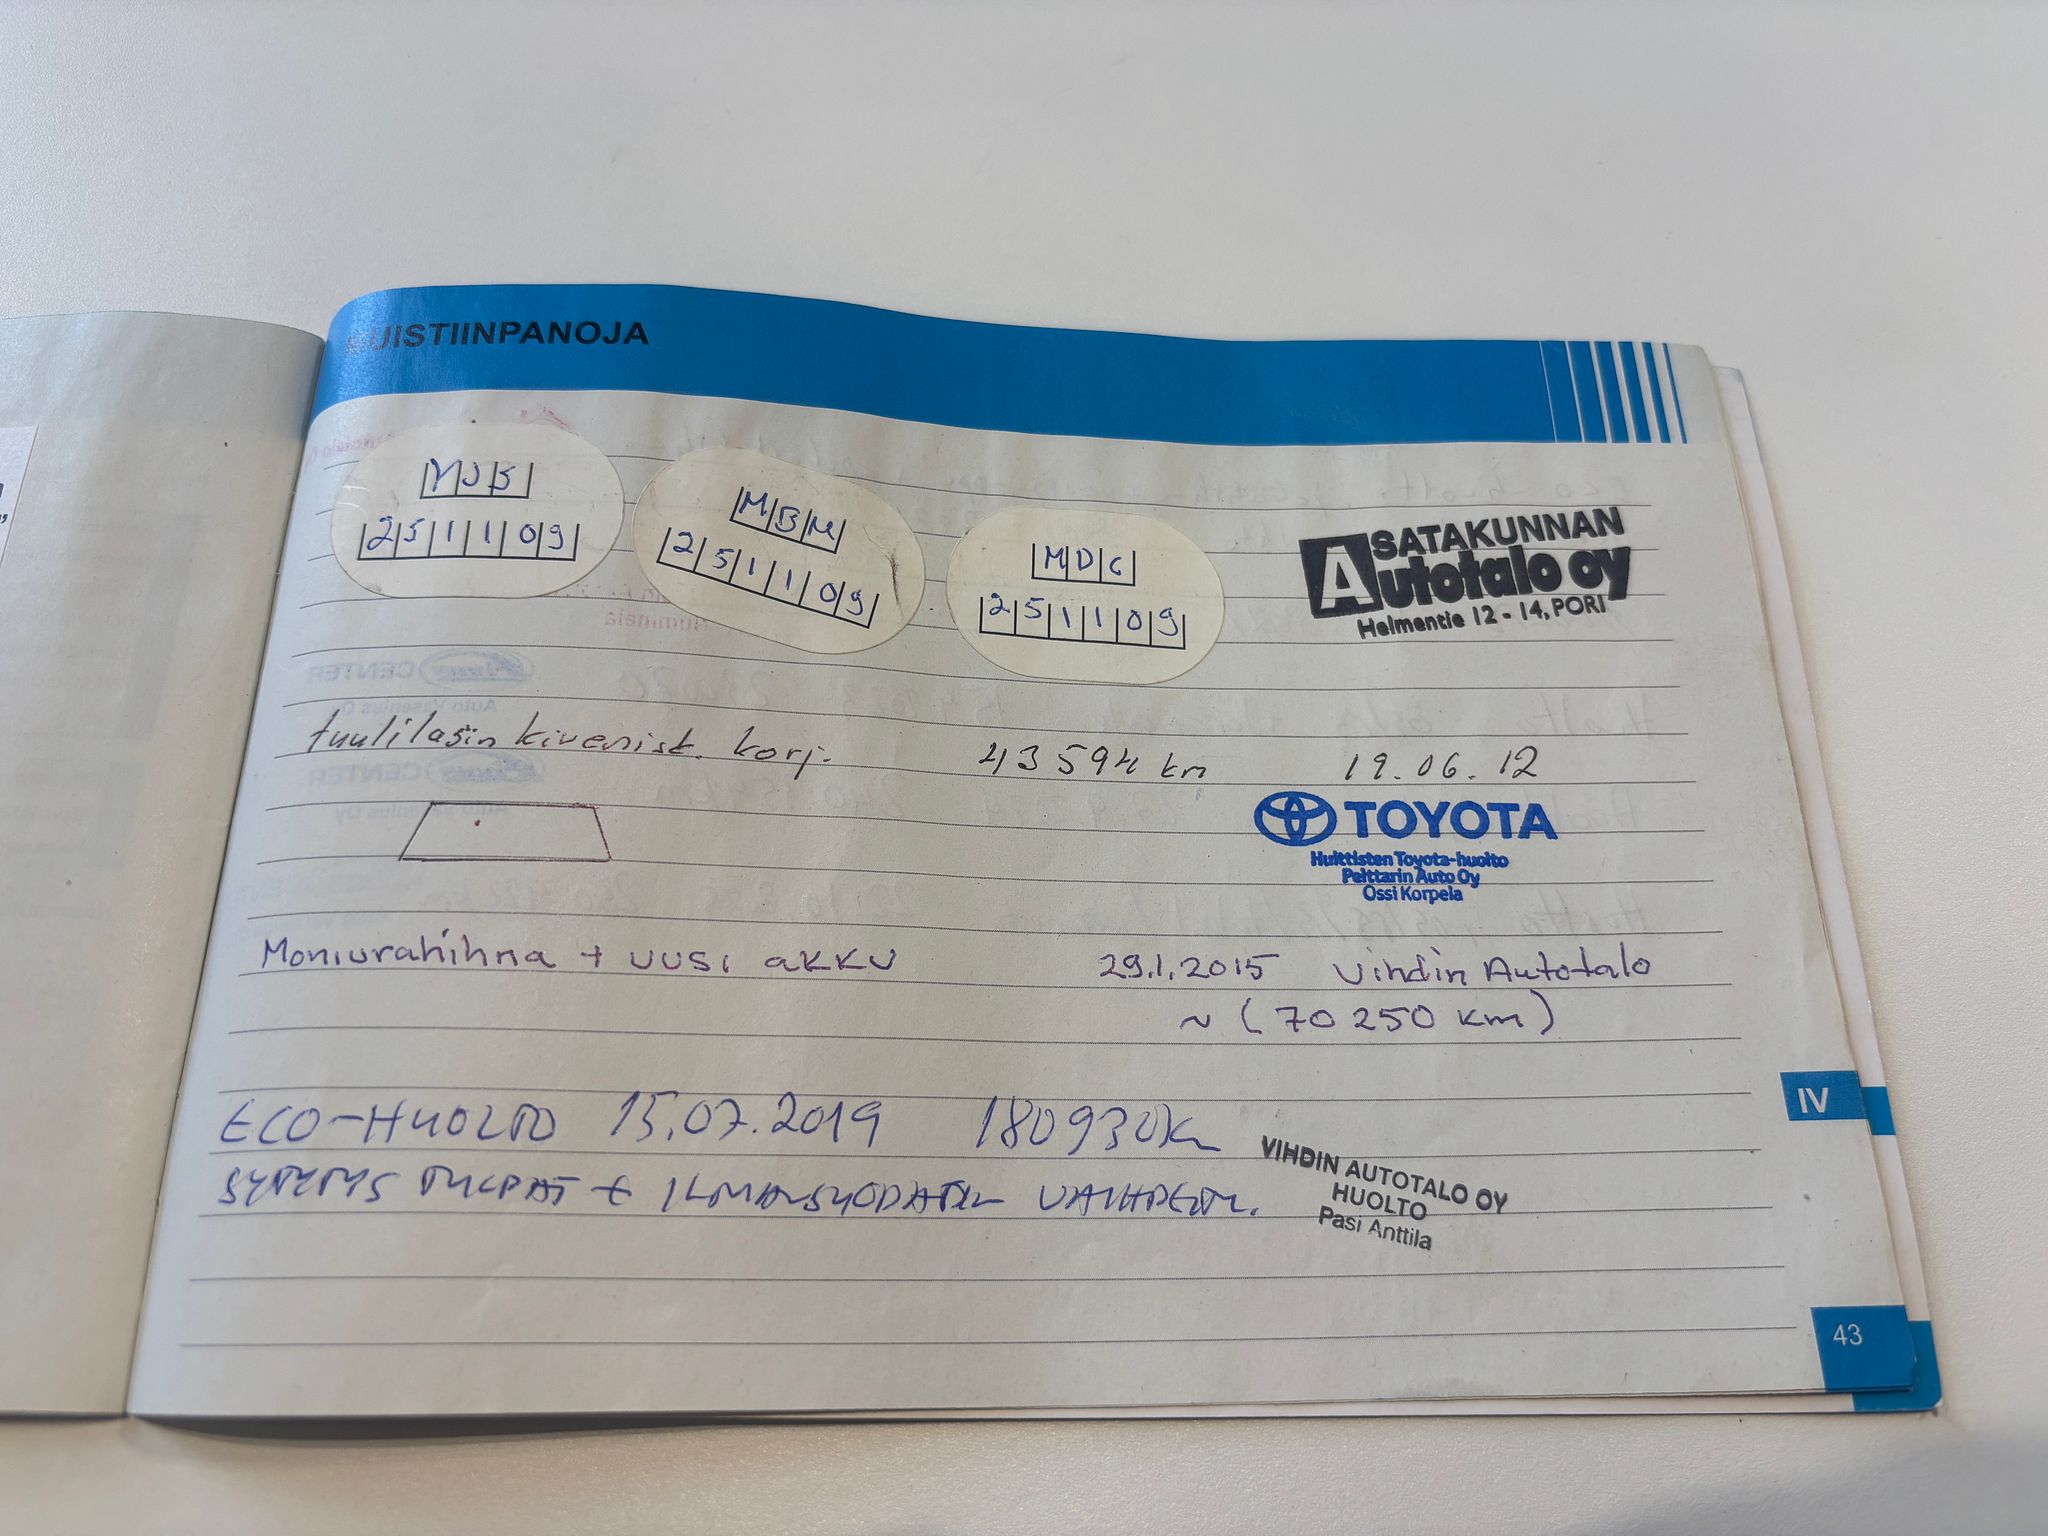 MUISTIINPANOJA
MJB
251109
MBM
251109
MDC
251109
SATAKUNNAN
Autotalo oy
Helmentie 12 - 14, PORI
tuulilasin kivenisk. korj. 43 594 km 19.06.12
TOYOTA
Huittisten Toyota-huolto
Pelttarin Auto Oy
Ossi Korpela
Moniurahihna + uusi akku 29.1.2015 Vihdin Autotalo
~ (70 250 km)
ECO-HUOLTO 15.07.2019 180930km
SYTYTYSTULPAT + ILMANSUODATIN VAIHDETTU.
VIHDIN AUTOTALO OY
HUOLTO
Pasi Anttila
IV
43